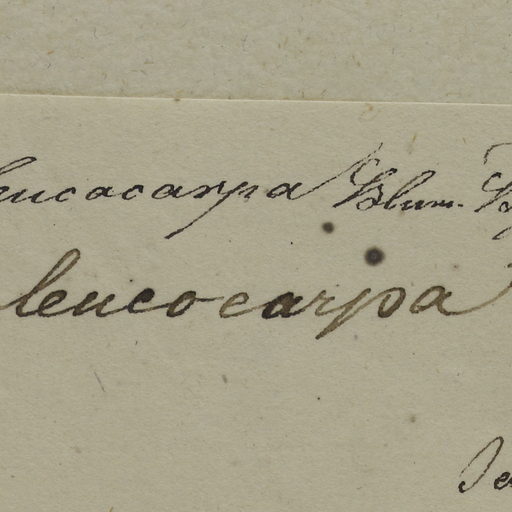 leucacarpa Blum.
leucocarpa